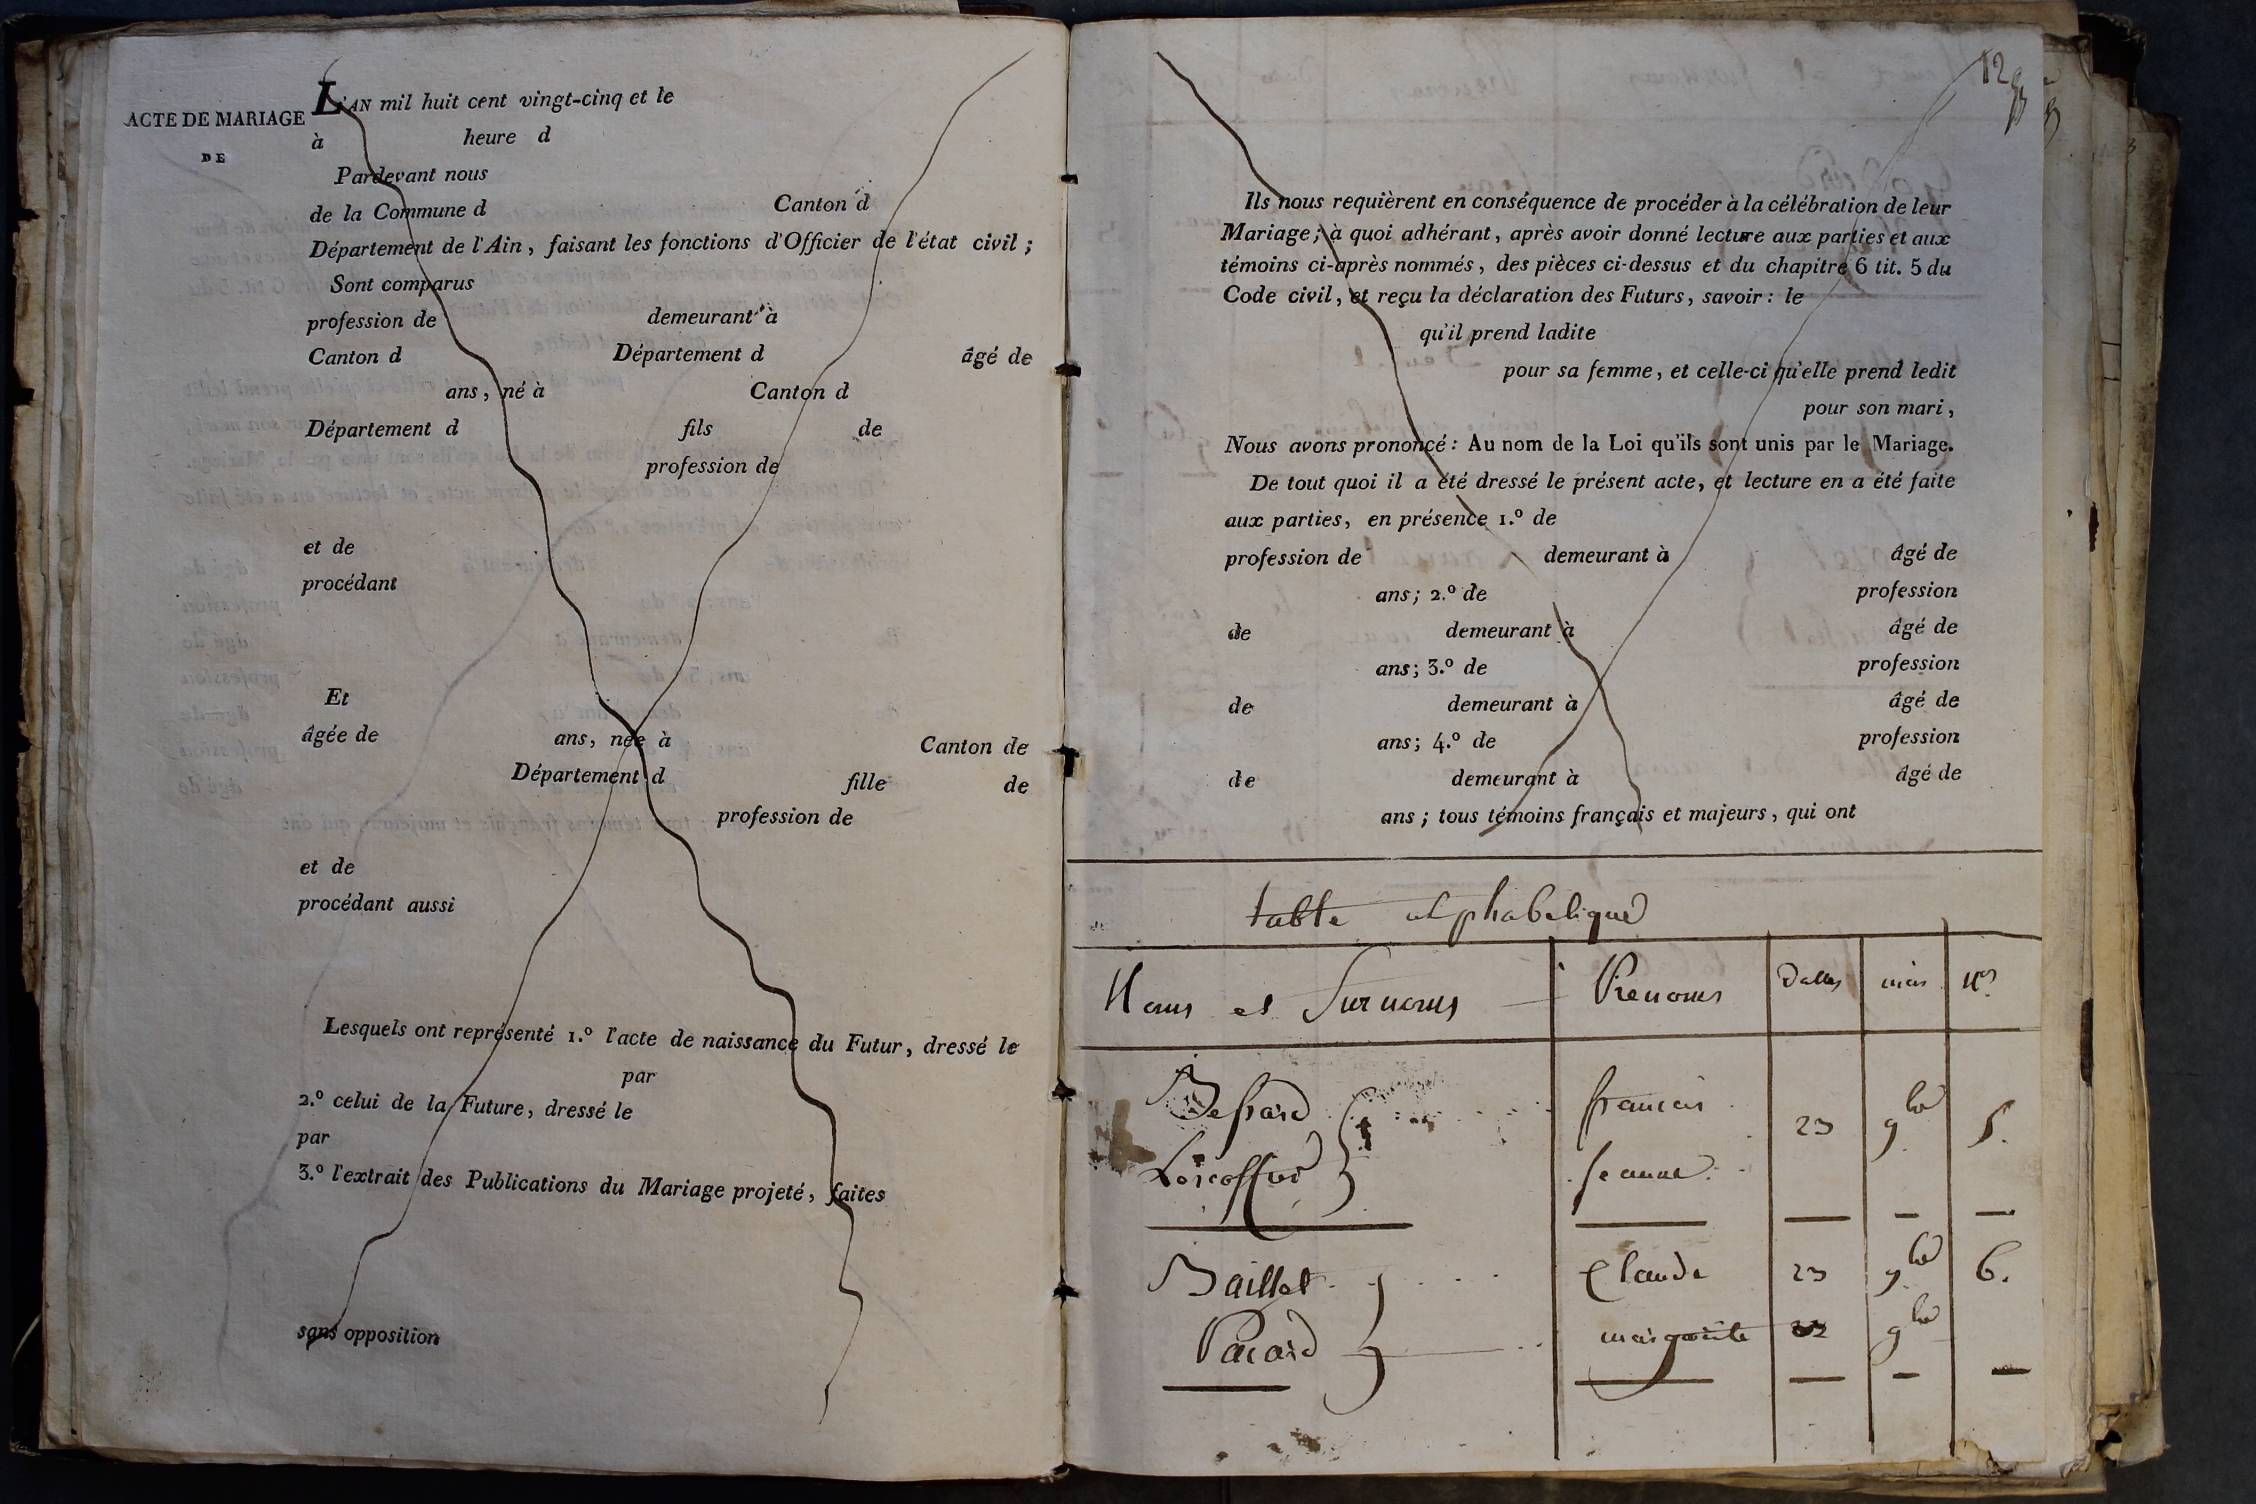 ACTE DE MARIAGE
DE
L'AN mil huit cent vingt-cinq et le
à heure d
Pardevant nous
de la Commune d Canton d
Département de l'Ain, faisant les fonctions d'Officier de l'état civil ;
Sont comparus
profession de demeurant à
Canton d Département d âgé de
ans, né à Canton d
Département d fils de
profession de
et de
procédant
Et
âgée de ans, née à Canton de
Département d fille de
profession de
et de
procédant aussi
Lesquels ont représenté 1.º l'acte de naissance du Futur, dressé le
par
2.º celui de la Future, dressé le
par
3.º l'extrait des Publications du Mariage projeté, faites
sans opposition
12
Ils nous requièrent en conséquence de procéder à la célébration de leur
Mariage; à quoi adhérant, après avoir donné lecture aux parties et aux
témoins ci-après nommés, des pièces ci-dessus et du chapitre 6 tit. 5 du
Code civil, et reçu la déclaration des Futurs, savoir : le
qu'il prend ladite
pour sa femme, et celle-ci qu'elle prend ledit
pour son mari,
Nous avons prononcé : Au nom de la Loi qu'ils sont unis par le Mariage.
De tout quoi il a été dressé le présent acte, et lecture en a été faite
aux parties, en présence 1.º de
profession de demeurant à âgé de
ans; 2.º de profession
de demeurant à âgé de
ans; 3.º de profession
de demeurant à âgé de
ans; 4.º de profession
de demeurant à âgé de
ans ; tous témoins français et majeurs, qui ont
table alphabetique
Noms et Surnoms Prenoms Dattes mois Nos
francois
23 9bre 5.
jeanne
Baillet Claude 23 9bre 6.
Pacard margueritte 23 9bre